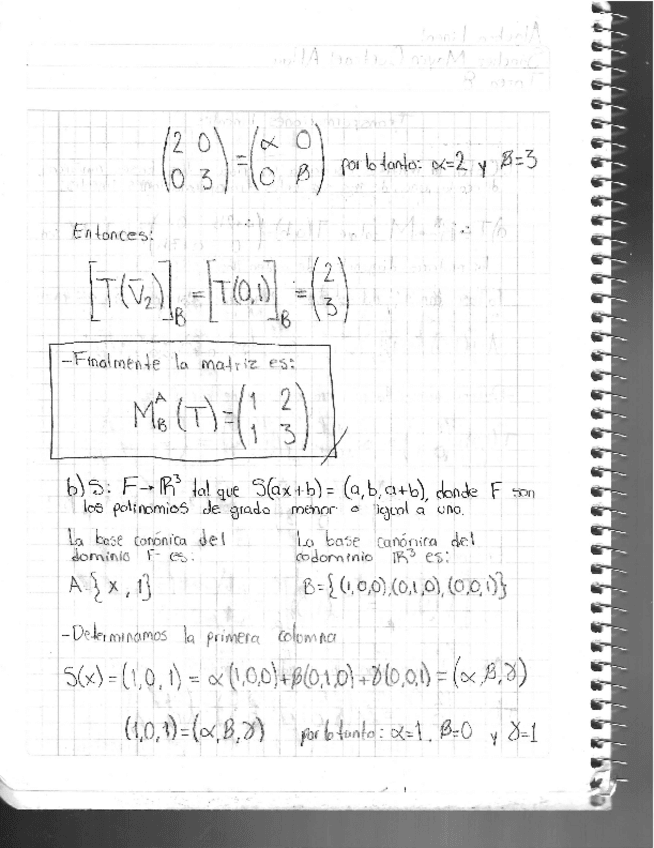 (2 0
0 3) = (α 0
0 β) por lo tanto: α=2 y β=3
Entonces:
[T(v̄₂)]_B = [T(0,1)]_B = (2
3)
-Finalmente la matriz es:
M_B^A (T) = (1 2
1 3)
b) S: F→ℝ³ tal que S(ax+b) = (a, b, a+b), donde F son
los polinomios de grado menor o igual a uno.
La base canónica del dominio F es:
A={x, 1}
La base canónica del codominio ℝ³ es:
B={(1,0,0),(0,1,0),(0,0,1)}
-Determinamos la primera columna
S(x)=(1,0,1) = α(1,0,0)+β(0,1,0)+γ(0,0,1)=(α,β,γ)
(1,0,1)=(α,β,γ) por lo tanto: α=1, β=0 y γ=1